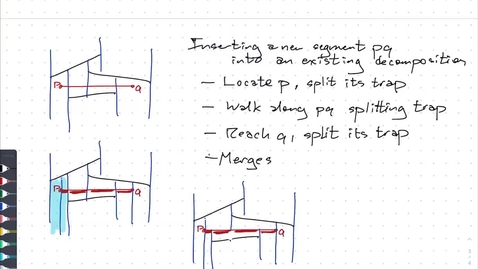 Inserting a new segment pq
into an existing decomposition
– Locate p, split its trap
– Walk along pq splitting trap
– Reach q, split its trap
– Merges
p q
p q
p q